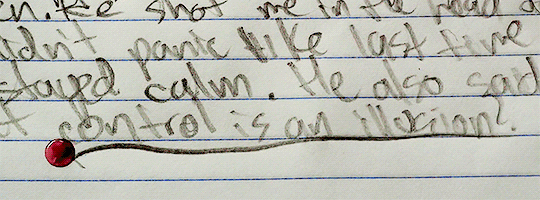 n. He shot me in the head a
idn't panic like last time
stayed calm. He also said
of control is an illusion?.